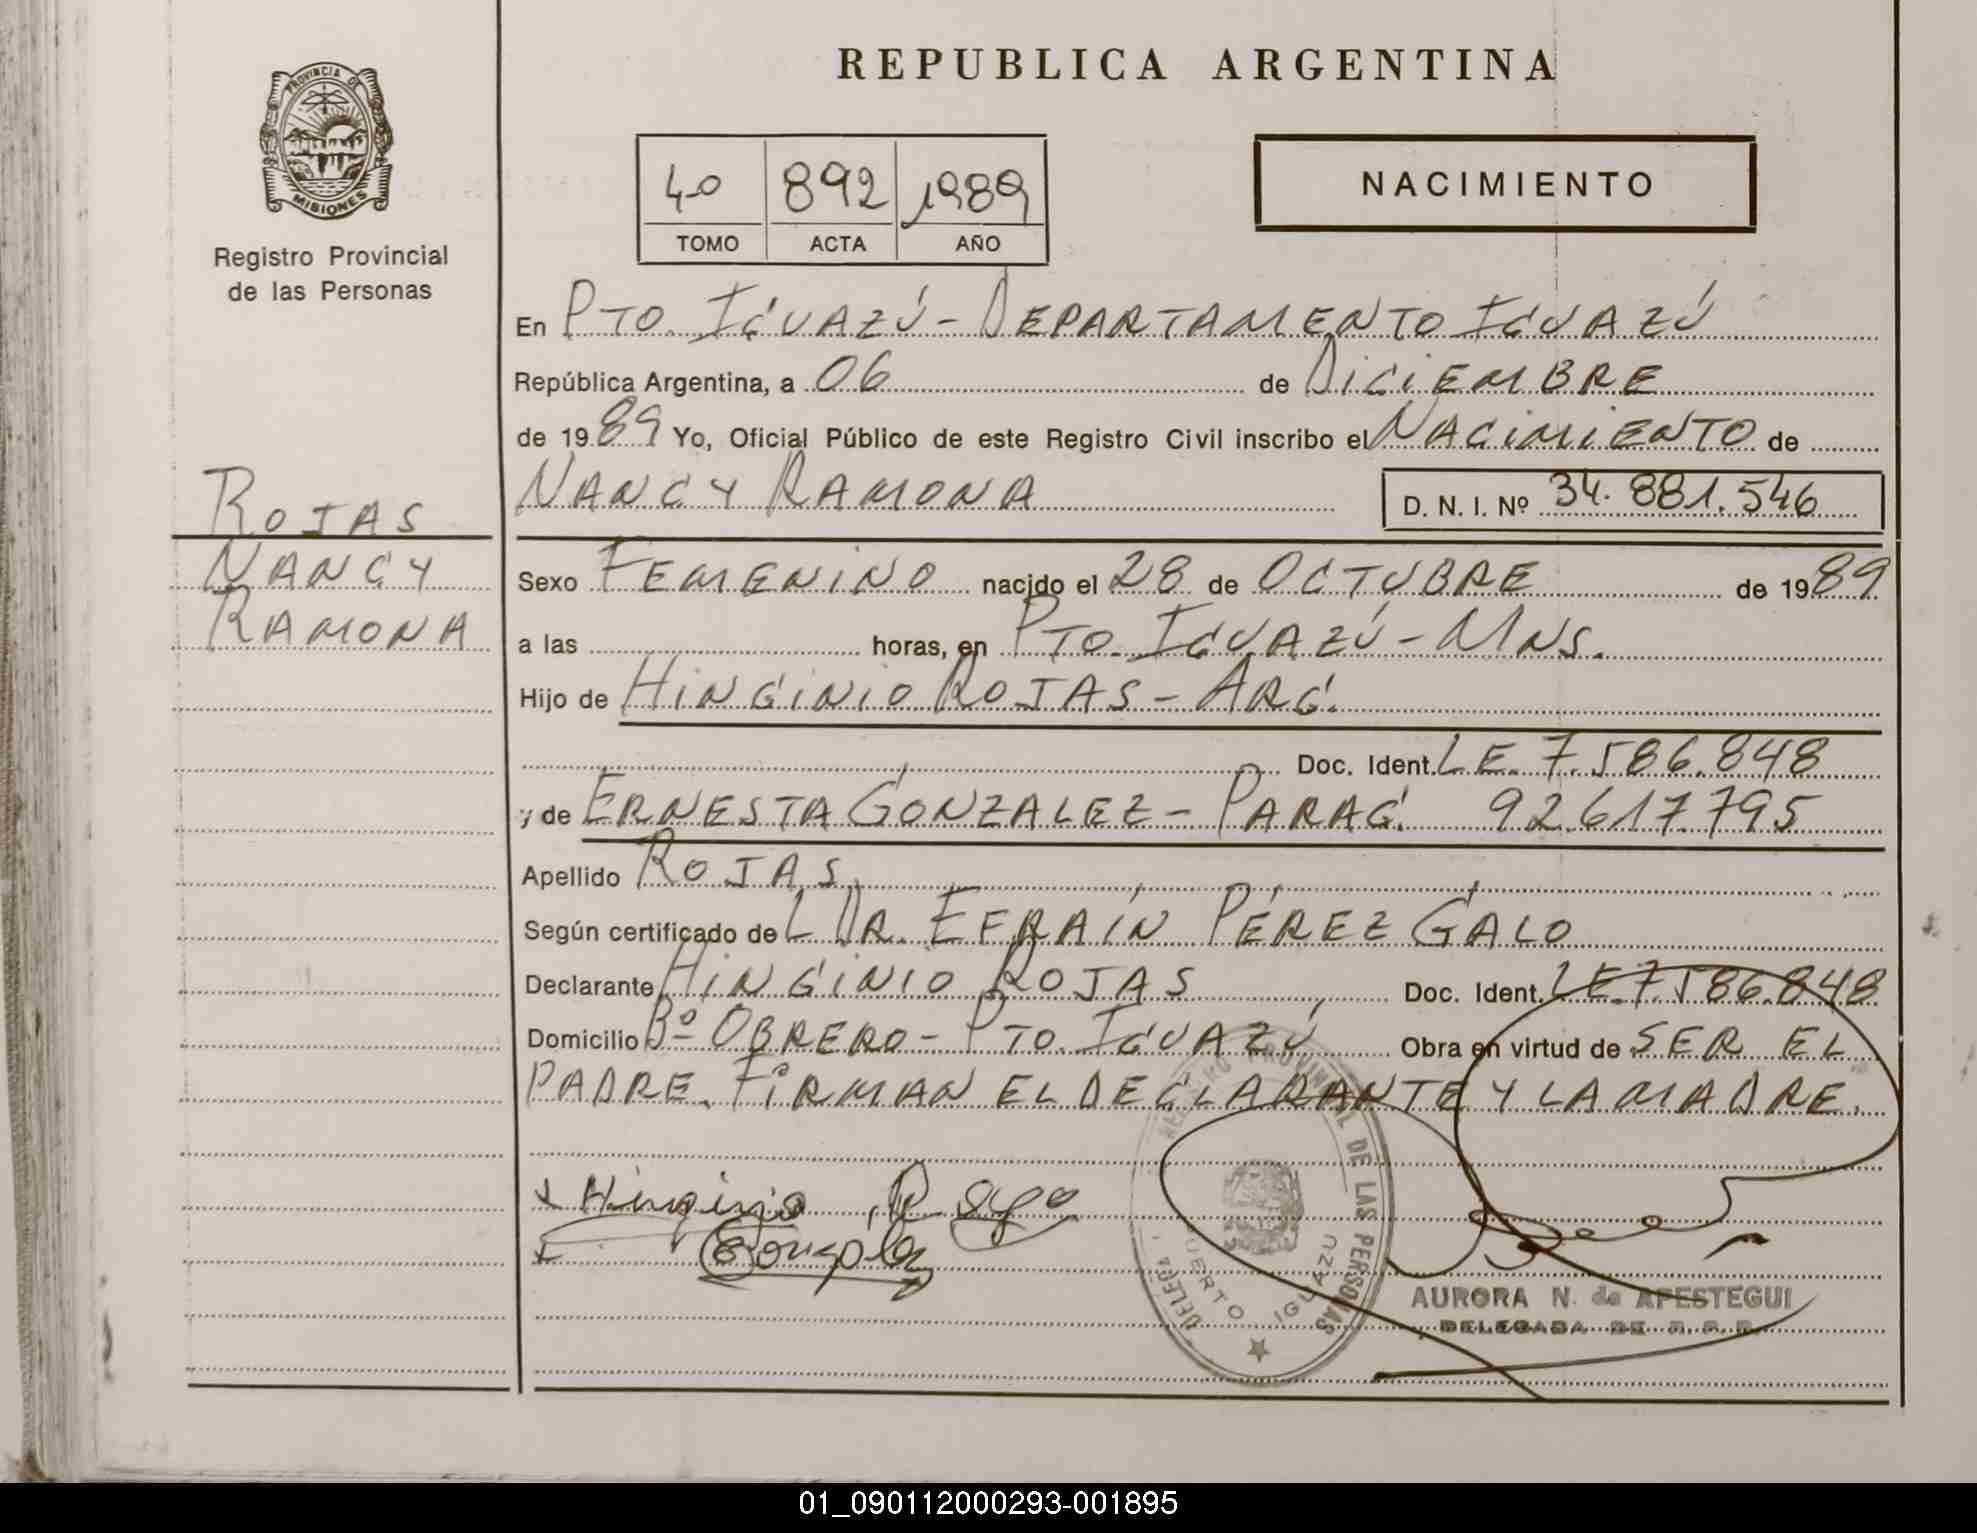 REPUBLICA ARGENTINA
PROVINCIA DE
MISIONES
Registro Provincial
de las Personas
40 892 1989
TOMO ACTA AÑO
NACIMIENTO
En PTO. IGUAZÚ - DEPARTAMENTO IGUAZÚ
República Argentina, a 06 de DICIEMBRE
de 1989 Yo, Oficial Público de este Registro Civil inscribo el NACIMIENTO de
NANCY RAMONA D. N. I. Nº 34.881.546
ROJAS
NANCY
RAMONA
Sexo FEMENINO nacido el 28 de OCTUBRE de 1989
a las horas, en PTO. IGUAZÚ - MNS.
Hijo de HINGINIO ROJAS - ARG.
Doc. Ident. LE. 7.586.848
y de ERNESTA GONZALEZ - PARAG. 92.617.795
Apellido ROJAS
Según certificado deL DR. EFRAÍN PÉREZ GALO
Declarante HINGINIO ROJAS Doc. Ident. LE.7.586.848
Domicilio Bº OBRERO - PTO. IGUAZÚ Obra en virtud de SER EL
PADRE. FIRMAN EL DECLARANTE Y LA MADRE.
REGISTRO PROVINCIAL DE LAS PERSONAS
PUERTO IGUAZU
Hinginio
AURORA N. de APESTEGUI
DELEGADA DE R. P. P.
01_090112000293-001895